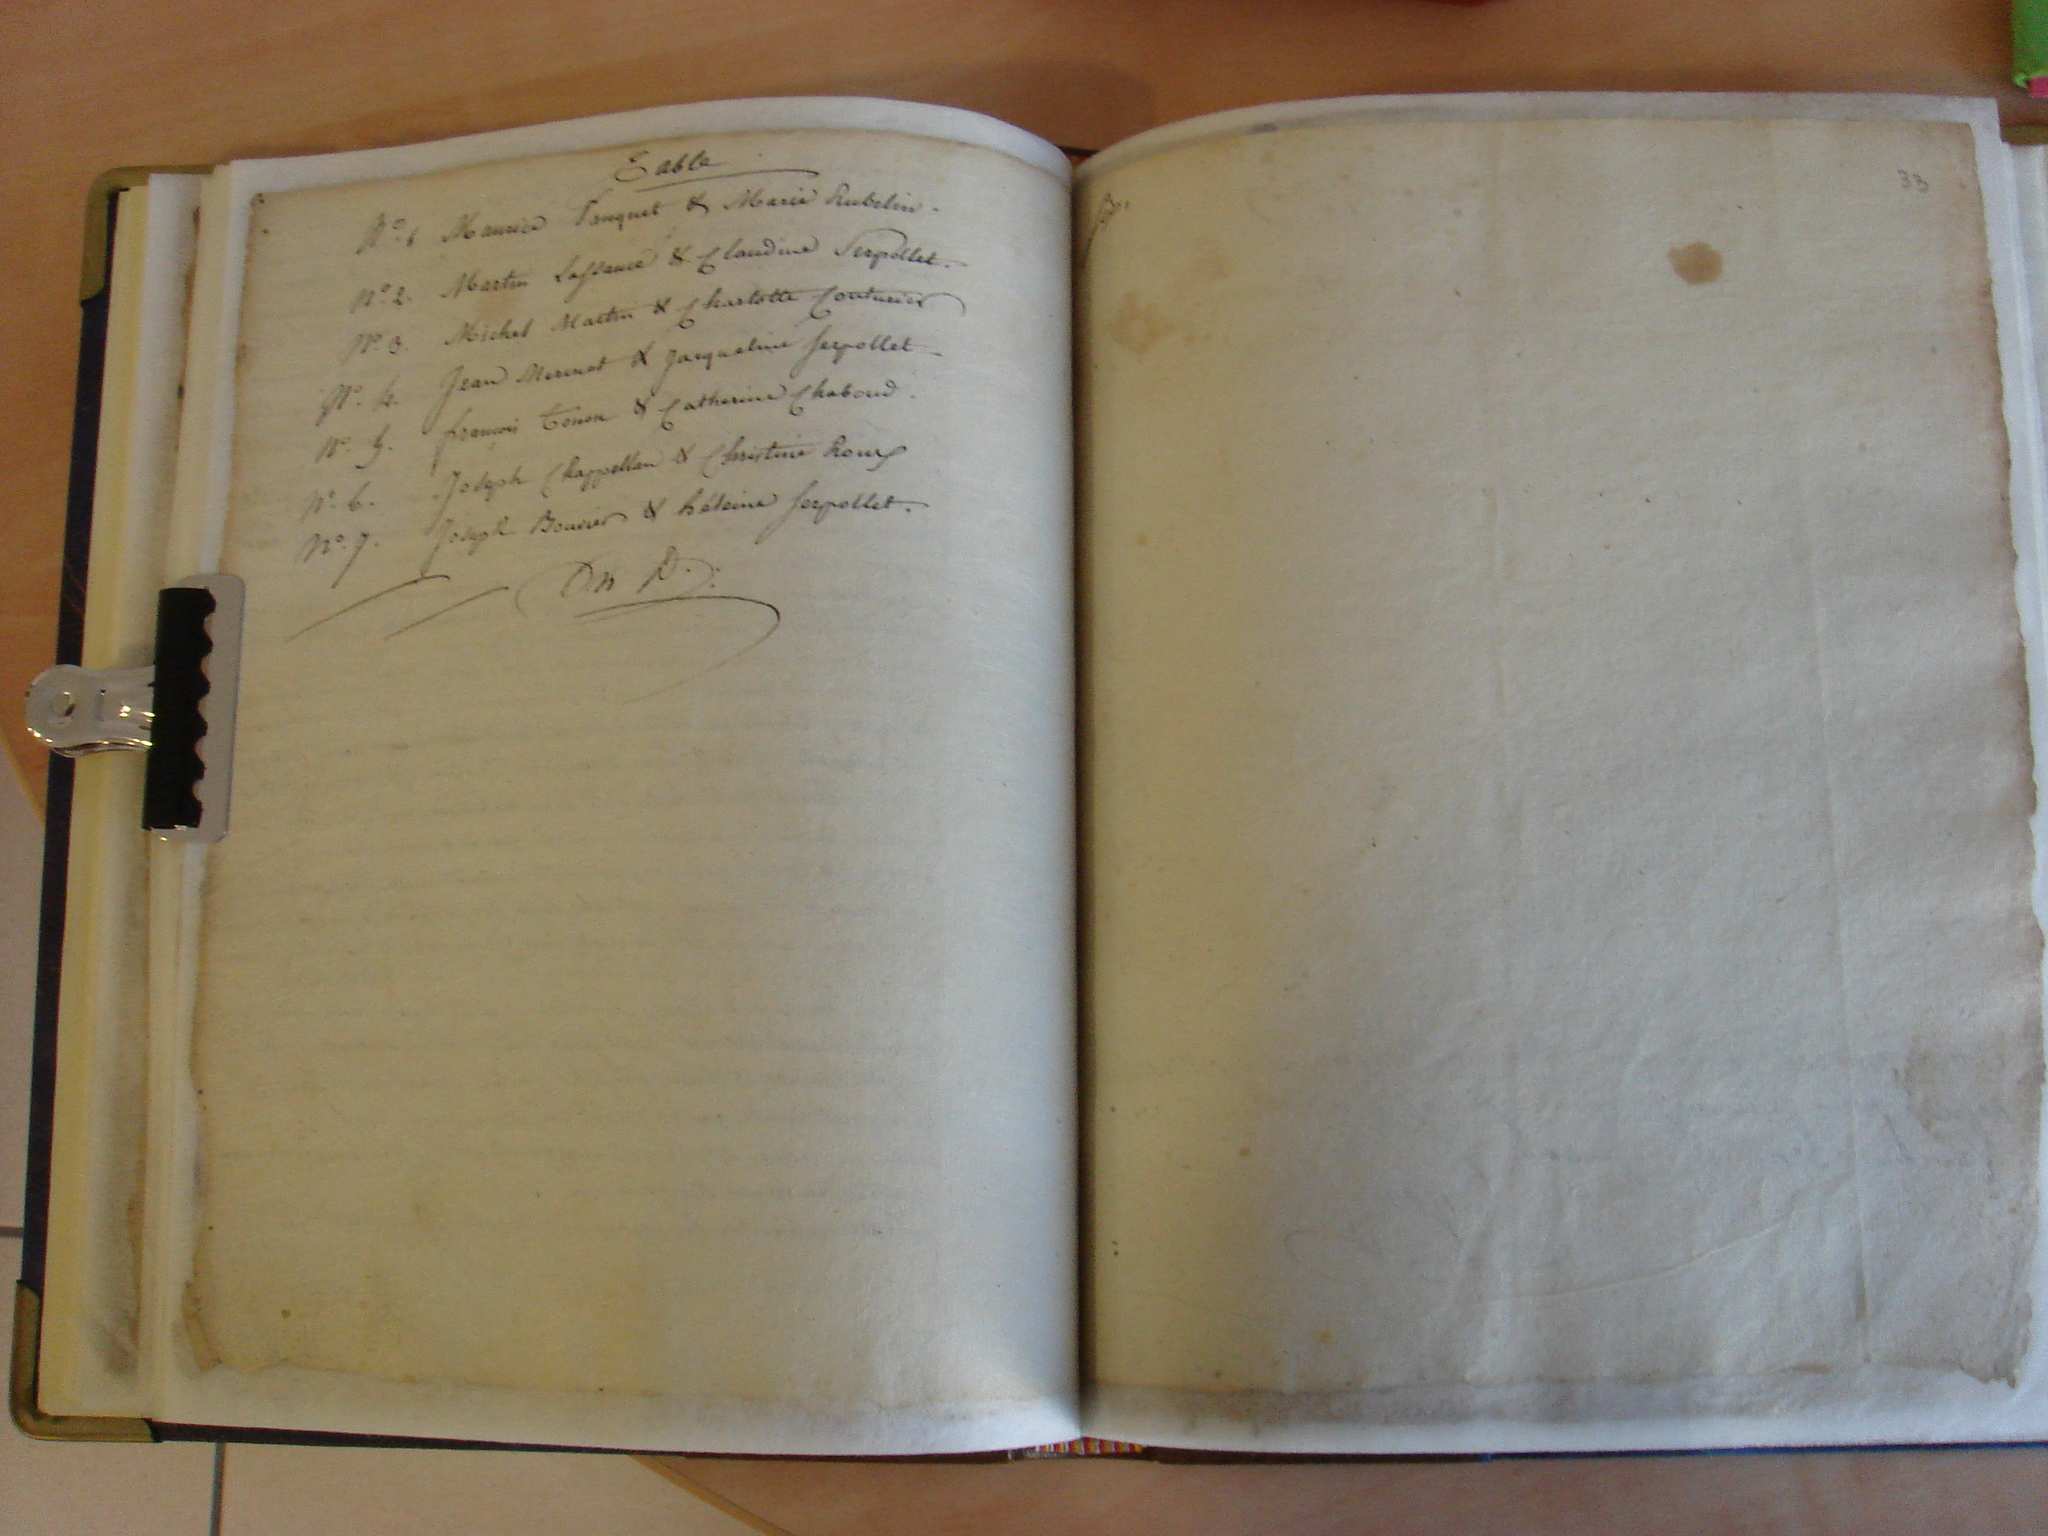 Table
N.o 1 Maurice Fauquet & Marie Rubelin.
N.o 2. Martin Lassauce & Claudine Serpollet.
N.o 3. Michel Martin & Charlotte Couturier
N.o 4. Jean Mermet & Jacqueline Serpollet
N.o 5. francois Tonon & Catherine Chaboud.
N.o 6. Joseph Chappellan & Christine Roux
N.o 7. Joseph Bouvier & héleine Serpollet.
33